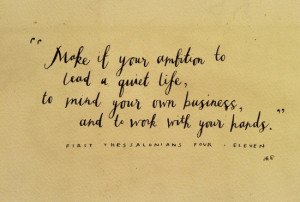 “Make it your ambition to
lead a quiet life,
to mind your own business,
and to work with your hands.”
FIRST THESSALONIANS FOUR : ELEVEN